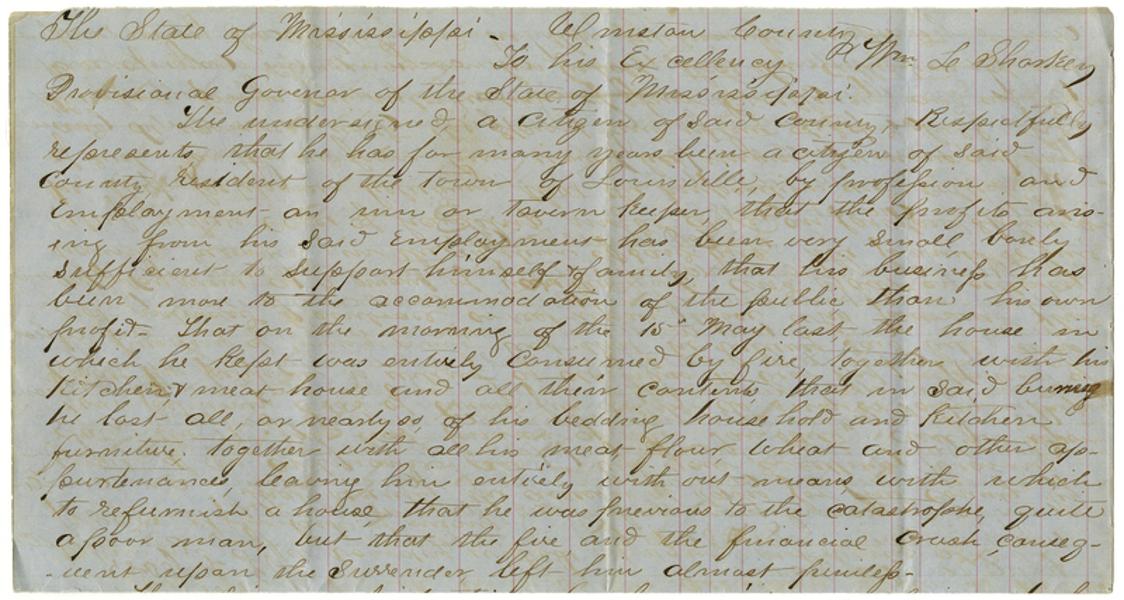 The State of Mississippi. Winston County
To his Excellency Wm L Sharkey
Provisional Govenor of the State of Mississippi.
The undersigned, a Citizen of said County, Respectfully
represents that he has for many years been a citizen of said
County resident of the Town of Louisville, by profession and
Employment an inn or Tavern Keeper, that the profits aris-
ing from his said Employment has been very small barely
sufficient to support himself & family, that his business has
been more to the accommodation of the public than his own
profit- That on the morning of the 15th May last, the house in
which he Kept was entirely Consumed by fire, together with his
Kitchen & meat house and all their contents that in said burning
he lost all, or nearly so, of his bedding household and Kitchen
furniture. together with all his meat flour wheat and other ap-
purtenances, leaving him entirely with out means with which
to refurnish a house, that he was previous to the catastrophe, quite
a poor man, but that the fire and the financial crash, conseq-
-uent upon the Surrender left him almost peniless-